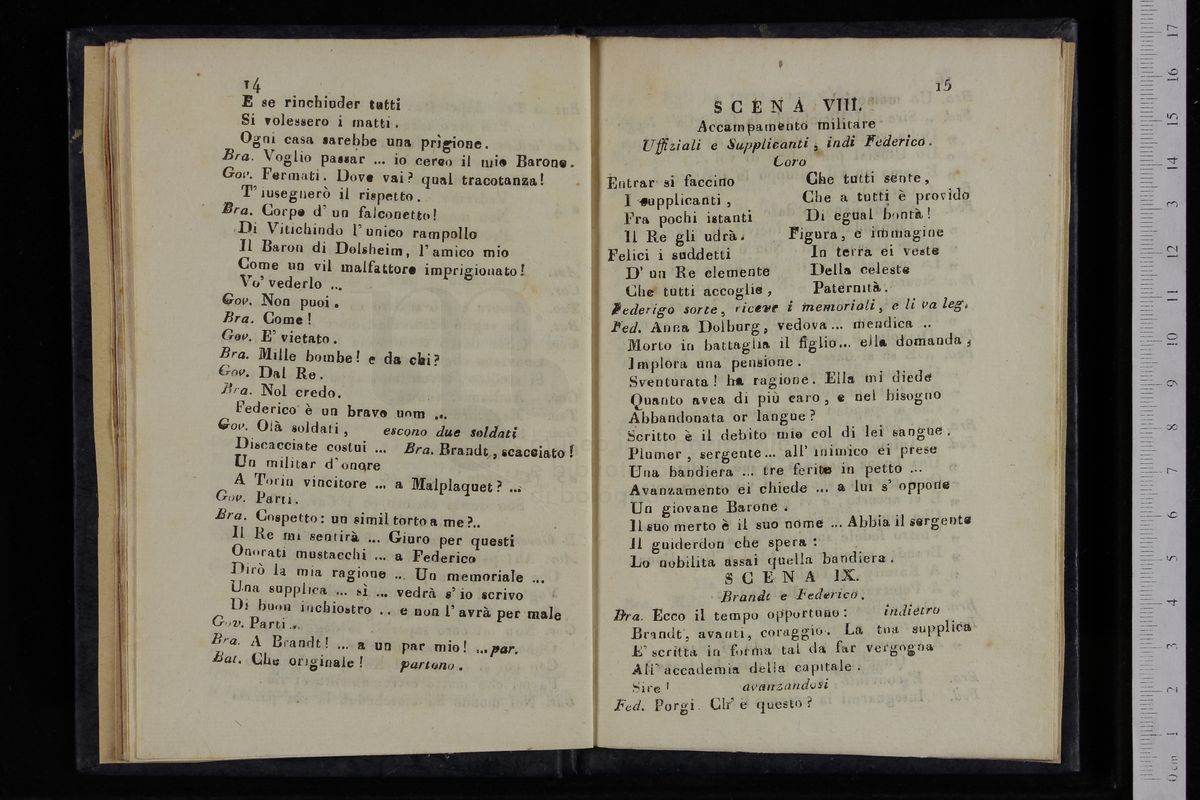 14
E se rinchiuder tutti
Si volessero i matti.
Ogni casa sarebbe una prigione.
Bra. Voglio passar ... io cerco il mio Barone.
Gov. Fermati. Dove vai? qual tracotanza!
T'insegnerò il rispetto.
Bra. Corpo d'un falconetto!
Di Vitichindo l'unico rampollo
Il Baron di Dolsheim, l'amico mio
Come un vil malfattore imprigionato!
Vo' vederlo ...
Gov. Non puoi.
Bra. Come!
Gov. E' vietato.
Bra. Mille bombe! e da chi?
Gov. Dal Re.
Bra. Nol credo.
Federico è un bravo uom ...
Gov. Olà soldati, escono due soldati
Discacciate costui ... Bra. Brandt, scacciato!
Un militar d'onore
A Torin vincitore ... a Malplaquet? ...
Gov. Parti.
Bra. Cospetto: un simil torto a me?..
Il Re mi sentirà ... Giuro per questi
Onorati mustacchi ... a Federico
Dirò la mia ragione ... Un memoriale ...
Una supplica ... sì ... vedrà s'io scrivo
Di buon inchiostro .. e non l'avrà per male
Gov. Parti...
Bra. A Brandt! ... a un par mio! ...par.
Bat. Che originale! partono.
15
SCENA VIII.
Accampamento militare
Uffiziali e Supplicanti, indi Federico.
Coro
Entrar si faccino
I supplicanti,
Fra pochi istanti
Il Re gli udrà.
Felici i sudditti
D'un Re clemente
Che tutti accoglie,
Che tutti sente,
Che a tutti è provido
Di egual bontà!
Figura, e immagine
In terra ei veste
Della celeste
Paternità.
Federigo sorte, riceve i memoriali, e li va leg.
Fed. Anna Dolburg, vedova ... mendica ..
Morto in battaglia il figlio... ella domanda,
Implora una pensione.
Sventurata! ha ragione. Ella mi diede
Quanto avea di più caro, e nel bisogno
Abbandonata or langue?
Scritto è il debito mio col di lei sangue.
Plumer, sergente... all'inimico ei prese
Una bandiera ... tre ferite in petto ...
Avanzamento ei chiede ... a lui s'oppone
Un giovane Barone.
Il suo merto è il suo nome ... Abbia il sergente
Il guiderdon che spera:
Lo nobilita assai quella bandiera.
SCENA IX.
Brandt e Federico.
Bra. Ecco il tempo opportuno: indietro
Brandt, avanti, coraggio. La tua supplica
E' scritta in forma tal da far vergogna
All'accademia della capitale.
Sire! avanzandosi
Fed. Porgi. Ch'è questo?